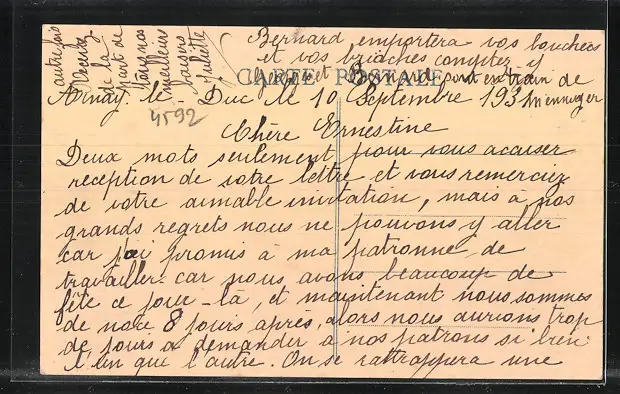 Arnay-le-Duc le 10 Septembre 193
Chère Ernestine
Deux mots seulement pour vous accuser
reception de votre lettre et vous remerciez
de votre aimable invitation, mais à nos
grands regrets nous ne pouvons y aller
car j'ai promis à ma patronne de
travailler car nous avons beaucoup de
fête ce jour-là, et maintenant nous sommes
de noce 8 jours après, alors nous aurions trop
de jours à demander à nos patrons si bien
l'un que l'autre. On se rattrappera une
autre fois
de la
part de
meilleurs
baisers
Juliette
Bernard emportera vos bouchees
et vos brioches comptez y
CARTE POSTALE
et Bernard sont en train de
4592